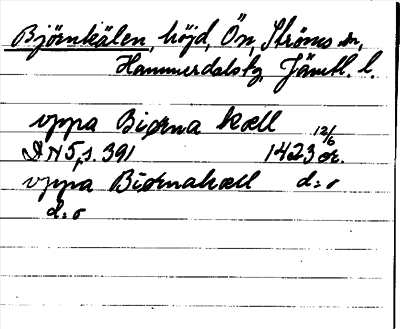 Björnkälen, höjd, Ön, Ströms sn,
Hammerdals tg, Jämtl. l.
vppa Biørna kæll 12/6
DN 5, s. 391 1423 or.
vppa Biørnakæll d:o
d:o